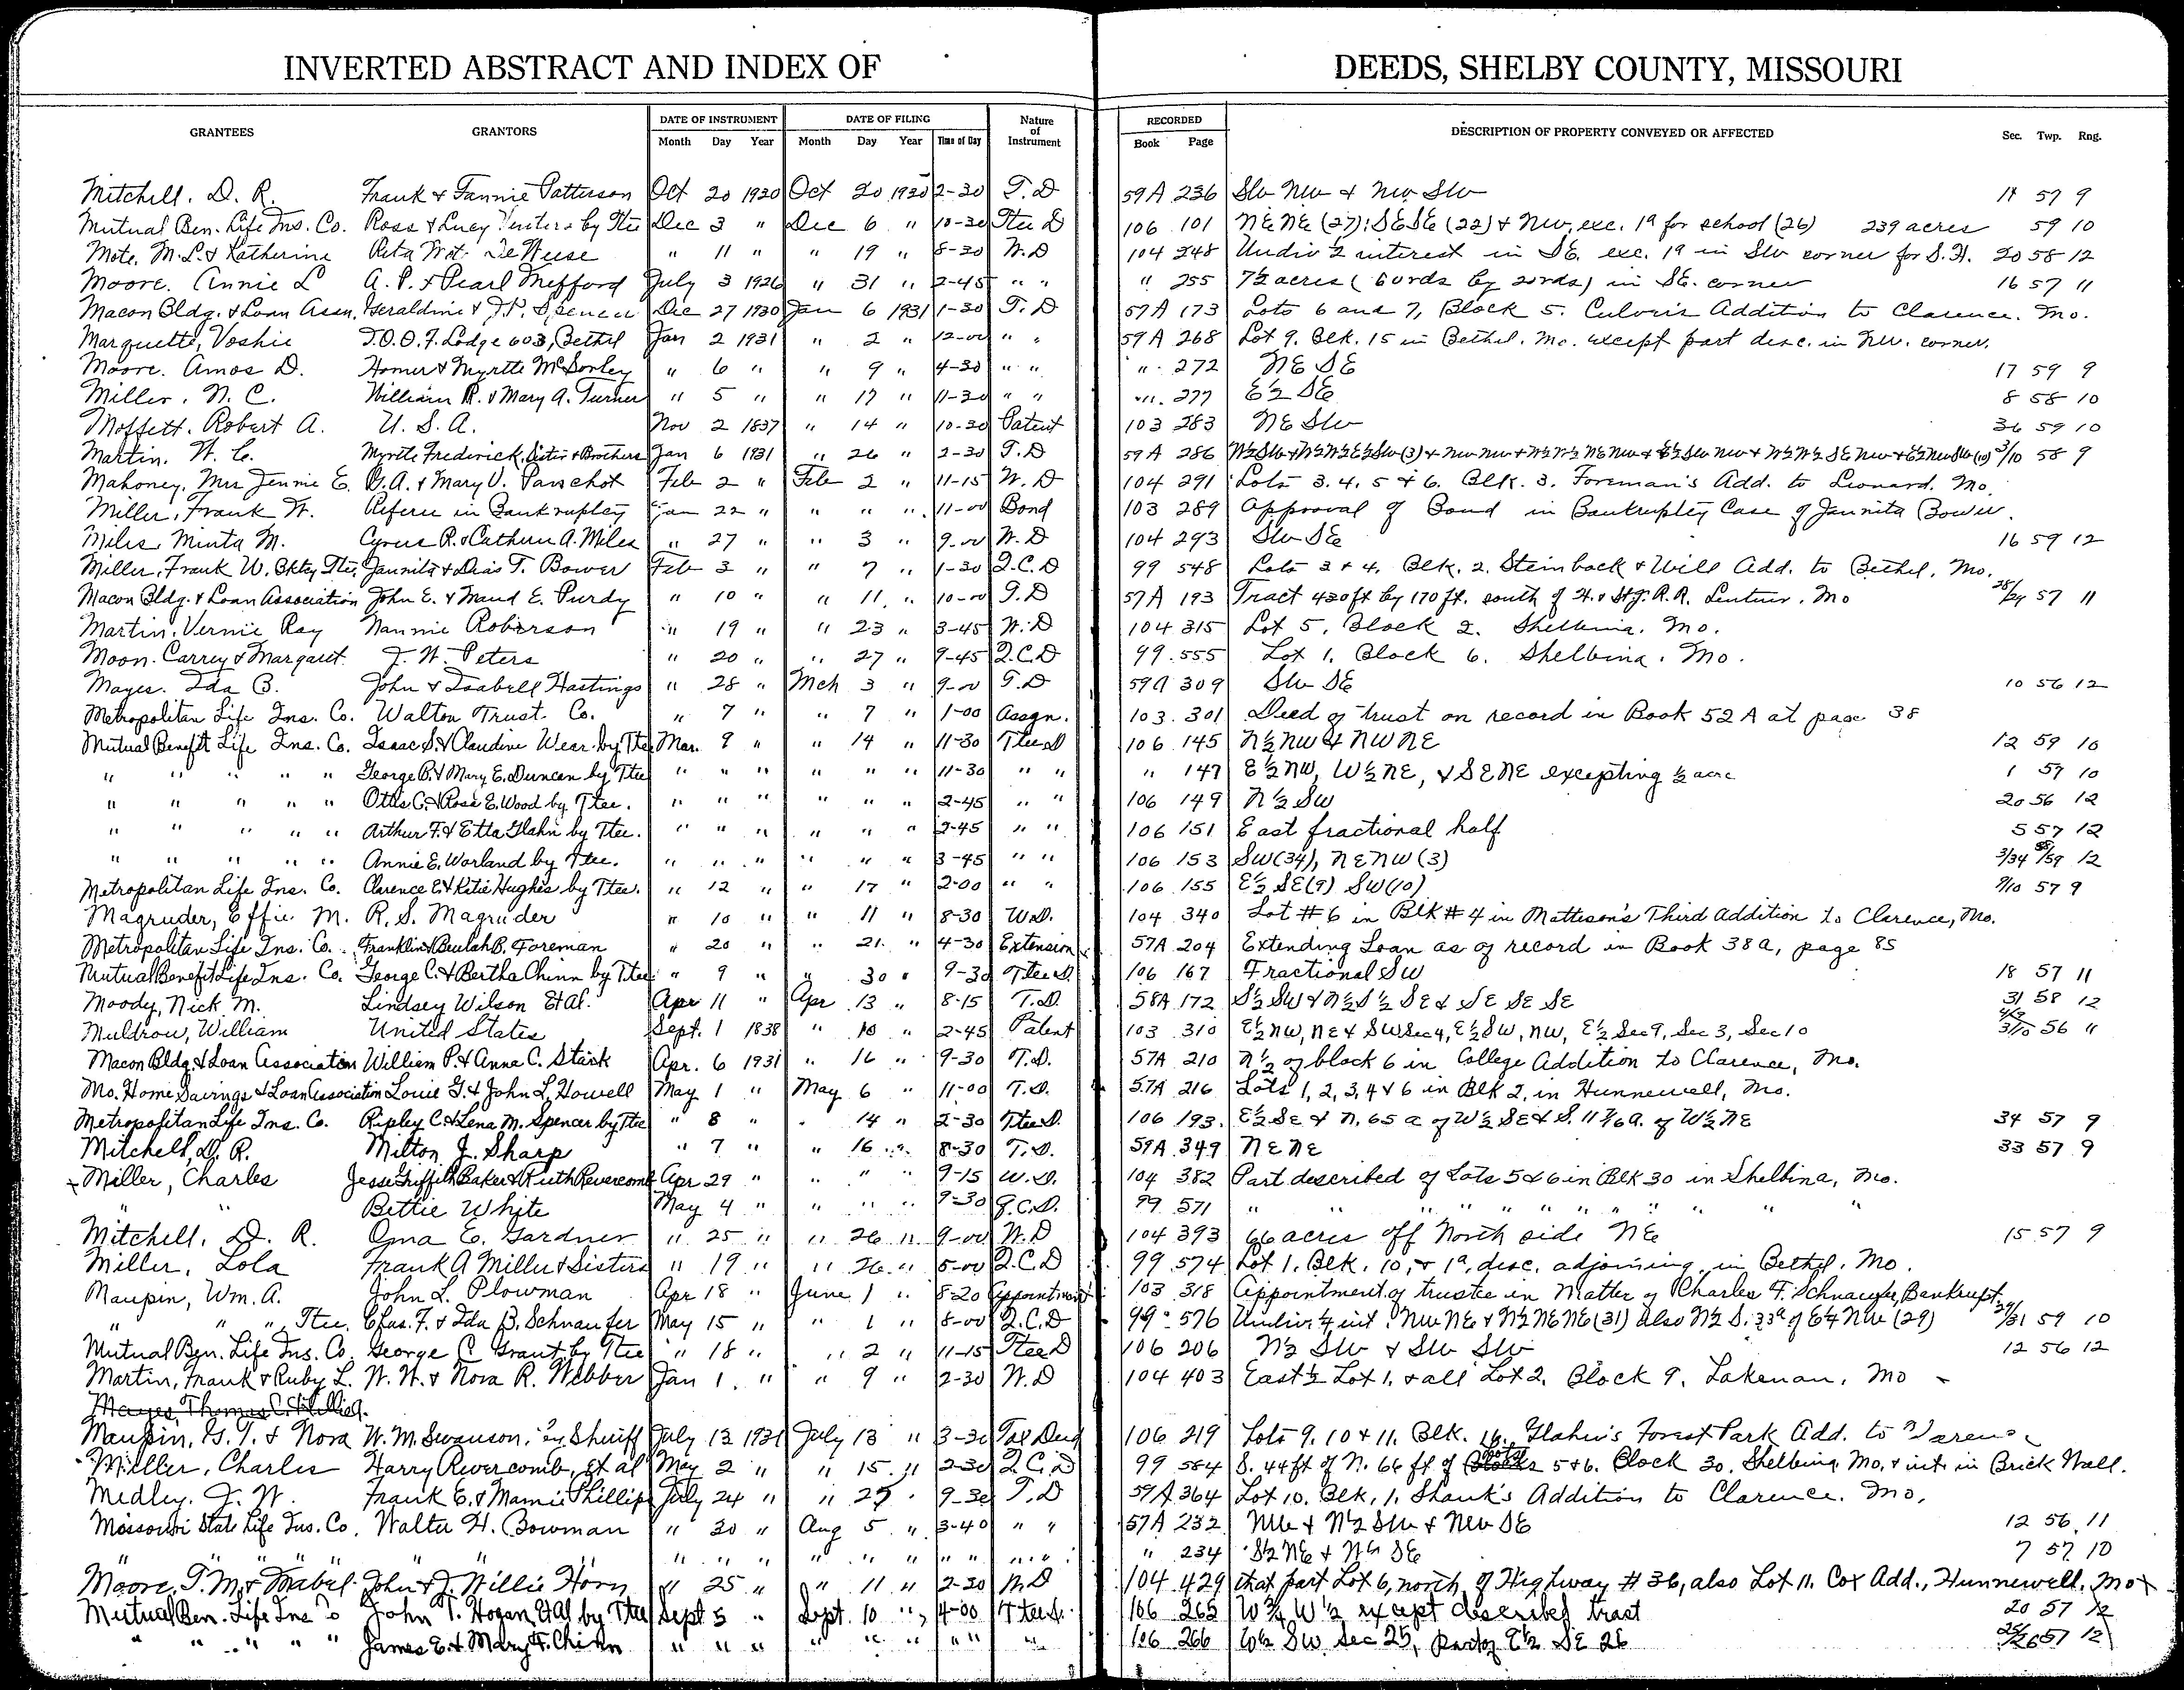 INVERTED ABSTRACT AND INDEX OF DEEDS, SHELBY COUNTY, MISSOURI
GRANTEES GRANTORS DATE OF INSTRUMENT DATE OF FILING Nature of Instrument RECORDED DESCRIPTION OF PROPERTY CONVEYED OR AFFECTED Sec. Twp. Rng.
Month Day Year Month Day Year Time of Day Book Page
Mitchell. D. R. Frank & Fannie Patterson Oct 20 1930 Oct 20 1930 2-30 T.D 59A 236 SW NW & NW SW 11 57 9
Mutual Ben. Life Ins. Co. Ross & Lucy by Ttee Dec 3 " Dec 6 " 10-30 Ttee D 106 101 NE NE (27); SE SE (22) & NW, exc. 1a for school (26) 239 acres 59 10
Mote. M. L. & Katherine " 11 " " 19 " 8-30 W.D 104 248 Undiv ½ interest in SE. exc. 1a in SW corner for S.H. 20 58 12
Moore. Annie L A. P. & Pearl Mefford July 3 1926 " 31 " 2-45 " " " 255 7½ acres (60rds by 20rds) in SE. corner 16 57 11
Macon Bldg. & Loan Assn. Geraldine & J.P. Spencer Dec 27 1930 Jan 6 1931 1-30 T.D 57A 173 Lots 6 and 7, Block 5. Culver's Addition to Clarence. Mo.
Marquette, Voshie I.O.O.F. Lodge 603, Bethel Jan 2 1931 " 2 " 12-00 " " 59A 268 Lot 9. Blk. 15 in Bethel. Mo. except part desc. in NW. corner.
Moore. Amos D. Homer & Myrtle McSorley " 6 " " 9 " 4-30 " " " 272 NE SE 17 59 9
Miller. N. C. William R. & Mary A. Turner " 5 " " 17 " 11-30 " " " 277 E½ SE 8 58 10
Moffett. Robert A. U. S. A. Nov 2 1837 " 14 " 10-30 Patent 103 283 NE SW 36 59 10
Martin. W. C. Myrtle Frederick, Sister & Brothers Jan 6 1931 " 26 " 2-30 T.D 59A 286 W½SW & W½W½E½SW(3) & NWNW & W½W½NENW & E½SWNW & W½W½SENW & E½NWSW(10) 3/10 58 9
Mahoney, Mrs Jennie E. G. A. & Mary V. Parschot Feb 2 " Feb 2 " 11-15 W.D 104 291 Lots 3. 4. 5 & 6. Blk. 3. Foreman's Add. to Leonard. Mo.
Miller, Frank W. Referee in Bankruptcy Jan 22 " " " " 11-00 Bond 103 289 Approval of Bond in Bankruptcy Case of Jaunita Bower.
Miles, Minta M. Cyrus R. & Cathern A. Miles " 27 " " 3 " 9-00 W.D 104 293 SW SE 16 59 12
Miller, Frank W. Bktcy Ttee. Jaunita & Dias T. Bower Feb 3 " " 7 " 1-30 Q.C.D 99 548 Lots 3 & 4. Blk. 2. Steinback & Will Add. to Bethel. Mo.
Macon Bldg. & Loan Association John E. & Maud E. Purdy " 10 " " 11 " 10-00 T.D 57A 193 Tract 430ft by 170 ft. south of H. & St.J. R.R. Lentner. Mo 57 11
Martin. Vernie Ray Nannie Roberson " 19 " " 23 " 3-45 W.D 104 315 Lot 5. Block 2. Shelbina. Mo.
Moon. Carrey & Margaret. J. W. Peters " 20 " " 27 " 9-45 Q.C.D 99 555 Lot 1. Block 6. Shelbina. Mo.
Mayes. Ida B. John & Isabell Hastings " 28 " Mch 3 " 9-00 T.D 59A 309 SW SE 10 56 12
Metropolitan Life Ins. Co. Walton Trust. Co. " 7 " " 7 " 1-00 Assgn. 103 301 Deed of trust on record in Book 52A at page 38
Mutual Benefit Life Ins. Co. Isaac S. & Claudine Wear by Ttee Mar. 9 " " 14 " 11-30 Ttee D 106 145 N½ NW & NW NE 12 59 10
" " " " " George P. & Mary E. Duncan by Ttee " " " " " " 11-30 " " " 147 E½ NW, W½ NE, & SE NE excepting ½ acre 1 59 10
" " " " " Ottis C. & Rosa E. Wood by Ttee. " " " " " " 2-45 " " 106 149 N½ SW 20 56 12
" " " " " Arthur F. & Etta Glahn by Ttee. " " " " " " 2-45 " " 106 151 East fractional half 5 57 12
" " " " " Annie E. Worland by Ttee. " " " " " " 3-45 " " 106 153 SW (34), NE NW (3) 3/34 58/59 12
Metropolitan Life Ins. Co. Clarence E. & Katie Hughes by Ttee. " 12 " " 17 " 2-00 " " 106 155 E½ SE (9) SW (10) 9/10 57 9
Magruder, Effie M. R. S. Magruder " 10 " " 11 " 8-30 W.D. 104 340 Lot #6 in Blk #4 in Matteson's Third Addition to Clarence, Mo.
Metropolitan Life Ins. Co. Franklin & Beulah B. Foreman " 20 " " 21 " 4-30 Extension 57A 204 Extending Loan as of record in Book 38A, page 85
Mutual Benefit Life Ins. Co. George C. & Bertha Chinn by Ttee " 9 " " 30 " 9-30 Ttee D. 106 167 Fractional SW 18 57 11
Moody, Nick M. Lindsey Wilson Et Al. Apr 11 " Apr 13 " 8-15 T.D. 58A 172 S½ SW & N½ S½ SE & SE SE SE 31 58 12
Muldrow, William United States Sept. 1 1838 " 10 " 2-45 Patent 103 310 E½ NW, NE & SW Sec 4, E½ SW, NW, E½ Sec 9, Sec 3, Sec 10 56 11
Macon Bldg. & Loan Association William P. & Anna C. Stark Apr. 6 1931 " 16 " 9-30 T.D. 57A 210 N½ of block 6 in College Addition to Clarence, Mo.
Mo. Home Savings & Loan Association Louie G. & John L. Howell May 1 " May 6 " 11-00 T.D. 57A 216 Lots 1, 2, 3, 4 & 6 in Blk 2, in Hunnewell, Mo.
Metropolitan Life Ins. Co. Ripley C. & Lena M. Spencer by Ttee " 8 " " 14 " 2-30 Ttee D. 106 193 E½ SE & N. 65 a of W½ SE & S. 11 7/6 a. of W½ NE 34 57 9
Mitchell, D. R. Milton J. Sharp " 7 " " 16 " 8-30 T.D. 59A 349 NE NE 33 57 9
Miller, Charles Jesse Griffith Baker & Ruth Revercomb Apr 29 " " " " 9-15 W.D. 104 382 Part described of Lots 5 & 6 in Blk 30 in Shelbina, Mo.
" " Bettie White May 4 " " " " 9-30 Q.C.D. 99 571 " " " " " " " " " " "
Mitchell. D. R. Oma E. Gardner " 25 " " 26 " 9-00 W.D 104 393 66 acres off North side NE 15 57 9
Miller, Lola Frank A Miller & Sisters " 19 " " 26 " 5-00 Q.C.D 99 574 Lot 1. Blk. 10, & 1a, desc. adjoining, in Bethel. Mo.
Maupin, Wm. A. John L. Plowman Apr 18 " June 1 " 8-20 Appointment 103 318 Appointment of trustee in Matter of Charles F. Schnaufer, Bankrupt.
" " " , Ttee. Chas. F. & Ida B. Schnaufer May 15 " " 1 " 8-00 Q.C.D 99 576 Undiv. ¼ int. NW NE & N½ NE NE (31) also N½ S. 33a of E¼ NW (29) 29/31 59 10
Mutual Ben. Life Ins. Co. George C Grant by Ttee " 18 " " 2 " 11-15 Ttee D 106 206 N½ SW & SW SW 12 56 12
Martin, Frank & Ruby L. W. W. & Nora R. Webber Jan 1. " " 9 " 2-30 W.D 104 403 East ½ Lot 1. & all Lot 2. Block 9. Lakenan. Mo
Mayes, Thomas C.
Maupin, G. T. & Nora W. M. Swanson, by Sheriff July 13 1931 July 13 " 3-30 Tax Deed 106 219 Lots 9. 10 & 11. Blk. 16. Glahn's Forest Park Add. to
Miller, Charles Harry Revercomb, et al May 2 " " 15 " 2-30 Q.C.D 99 584 S. 44 ft of N. 66 ft of Lots 5 & 6. Block 30. Shelbina Mo. & int. in Brick Wall.
Medley. J. W. Frank E. & Mamie Phillips July 24 " " 27 " 9-30 T.D 59A 364 Lot 10. Blk. 1. Shank's Addition to Clarence. Mo.
Missouri State Life Ins. Co. Walter H. Bowman " 30 " Aug 5 " 3-40 " " 57A 232 NW & N½ SW & NW SE 12 56 11
" " " " " " " " " " " " " " " " 234 S½ NE & N½ SE 7 57 10
Moore, T. M. & Mabel John & J. Willie Horn " 25 " " 11 " 2-30 W.D 104 429 that part Lot 6, north of Highway #36, also Lot 11. Cox Add., Hunnewell. Mo
Mutual Ben. Life Ins Co John T. Hogan, Et Al by Ttee Sept 5 " Sept. 10 " 4-00 Ttee D. 106 265 W¾ W½ except described tract 20 57 12
" " " " " James E. & Mary F. Chinn " " " " " " " " " 106 266 W½ SW Sec 25, part of E½ SE 26 25/26 57 12